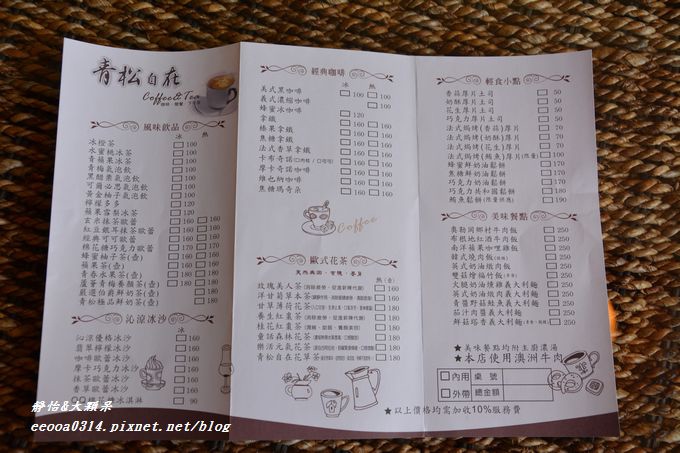 青松自在
Coffee&Tea
風味飲品
冰 熱
冰橙茶 100
水蜜桃冰茶 100
青蘋果冰茶 100
青梅氣泡飲 100
黑醋栗氣泡飲 100
可爾必思氣泡飲 100
黃金柚子氣泡飲 100
檸檬多多 120
蘋果雪梨冰茶 180
玄米抹茶歐蕾 160 160
紅豆銀耳抹茶歐蕾 160 160
經典可可歐蕾 160 160
棉花糖巧克力歐蕾 160 160
蜂蜜柚子茶(壺) 160
蘋果茶(壺) 180
青春水果茶(壺) 180 180
蘆薈青梅養顏茶(壺) 180
嚴選伯爵鮮奶茶(壺) 180
青松極品鮮奶茶(壺) 180
沁涼冰沙
冰
沁涼優格冰沙 160
翡翠檸檬冰沙 160
咖啡歐蕾冰沙 160
摩卡巧克力冰沙 160
抹茶歐蕾冰沙 160
香草歐蕾冰沙 160
冰淇淋 90
經典咖啡
冰 熱
美式黑咖啡 100 100
義式濃縮咖啡 100
蜂蜜冰咖啡 120
拿鐵 160 160
榛果拿鐵 160 160
焦糖拿鐵 160 160
法式香草拿鐵 160 160
卡布奇諾 160 160
摩卡卡奇諾 160 160
維也納咖啡 160 160
焦糖瑪奇朵 160 160
Coffee
歐式花茶
天然無咖．有機．養身
熱(壺)
玫瑰美人茶 160
洋甘菊草本茶 160
甘草薄荷花茶 180
養生紅棗茶 180
桂花紅棗茶 180
童話森林花茶 180
樂活元氣花茶 180
青松自在花茶 180
★以上價格均需加收10%服務費
輕食小點
香蒜厚片土司 50
奶酥厚片土司 50
花生厚片土司 50
巧克力厚片土司 50
法式焗烤(香蒜)厚片 70
法式焗烤(奶酥)厚片 70
法式焗烤(花生)厚片 70
法式焗烤(鮪魚)厚片(限量) 100
蜂蜜鮮奶油鬆餅 170
焦糖鮮奶油鬆餅 170
巧克力共和國鬆餅 180
鮪魚鬆餅(限量供應) 190
美味餐點
奧勒岡鄉村牛肉飯 250
布根地紅酒牛肉飯 250
南洋蘋果咖哩雞飯 250
韓式燒肉飯 250
英式奶油燉肉飯 250
雙菇燴福竹飯 250
火腿奶油燉雞義大利麵 250
英式奶油燉肉義大利麵 250
青醬野菇鮭魚義大利麵 250
茄汁肉醬義大利麵 250
鮮菇塔香義大利麵 250
★美味餐點均附主廚濃湯
★本店使用澳洲牛肉
內用 桌號
外帶 總金額
靜怡&大顆呆
eeooa0314.pixnet.net/blog